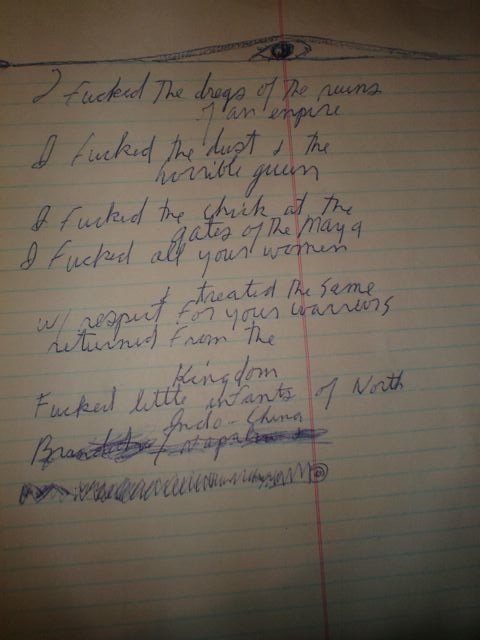 I Fucked The dregs of The ruins
of an empire
I Fucked the dust & the
horrible queen
I Fucked the chick at the
gates of the Maya
I Fucked all your women
& treated the same
w/ respect for your warriors
returned From the
Kingdom
Fucked little infants of North
Indo-China